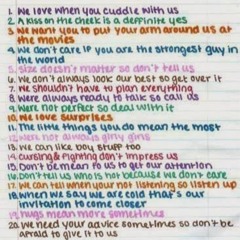 1. We love when you cuddle with us
2. A kiss on the cheek is a deffinite yes
3. We want you to put your arm around us at
the movies
4. We don't care if you are the strongest guy in
the world
5. Size doesn't matter so don't tell us
6. We don't always look our best so get over it
7. We shouldn't have to plan everything
8. We're always ready to talk so call us
9. Were not perfect so deal with it
10. We love surprises
11. The little things you do mean the most
12. We're not always girly girls
13. We can like boy stuff too
14. Cursing & fighting don't impress us
15. Don't be mean to us to get our attention
16. Don't tell us who is hot because we don't care
17. We can tell when your not listening so listen up
18. When we say we are cold that's our
invitation to come closer
19. Hugs mean more sometimes
20. We need your advice sometimes so don't be
afraid to give it to us